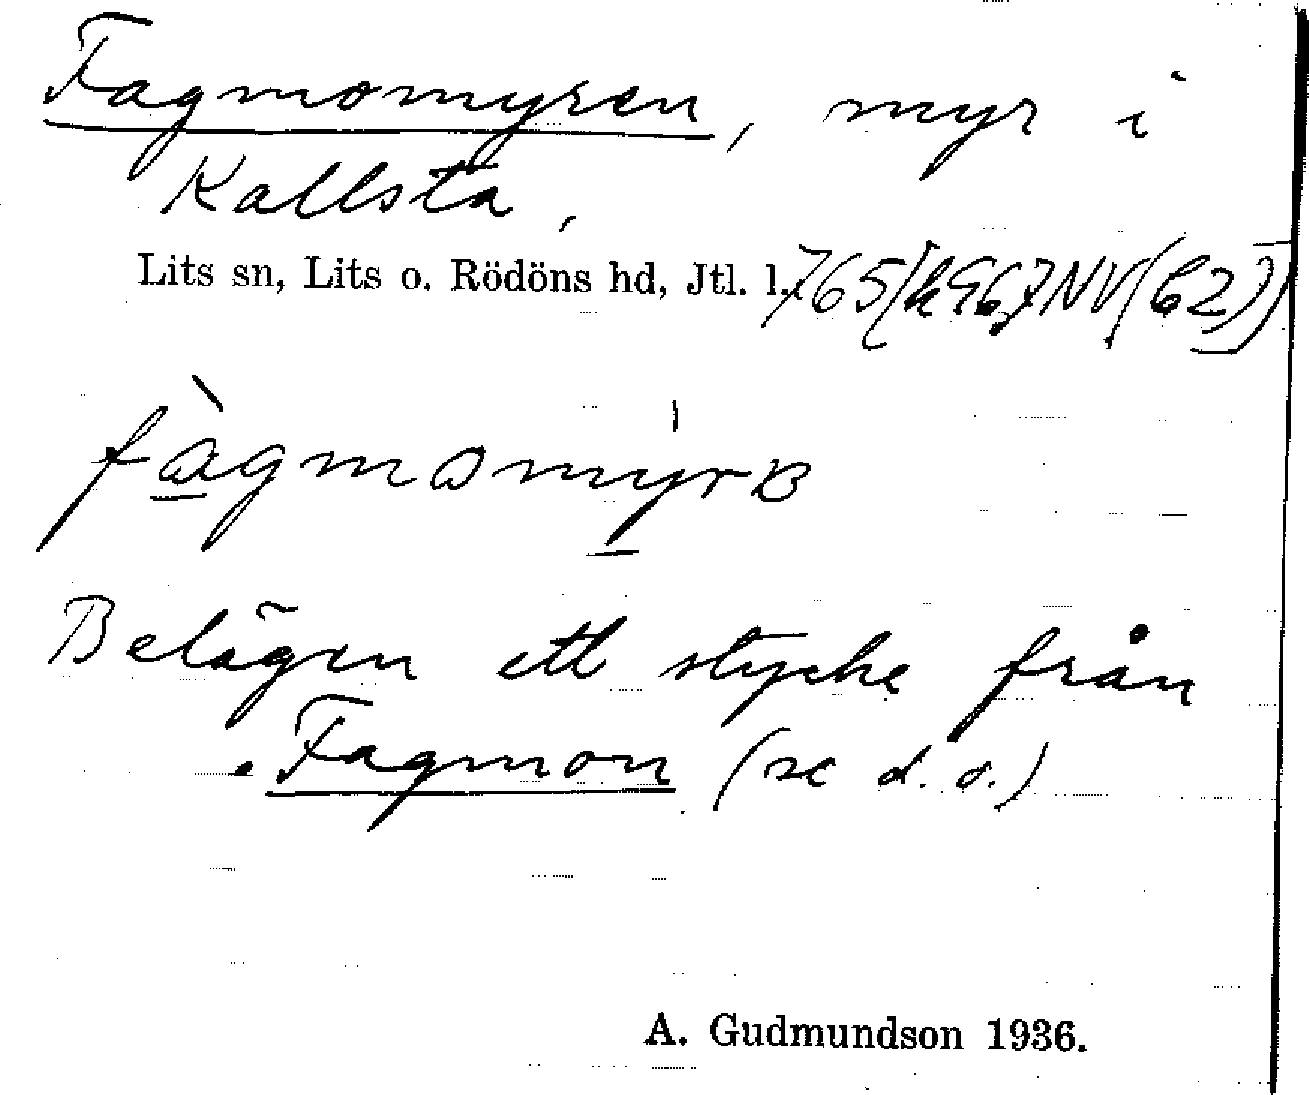 Fagmomyren, myr i
Kallsta,
Lits sn, Lits o. Rödöns hd, Jtl. l.
fàgmomyrɞ
Belägen ett stycke från
Fagmon (se d. o.)
A. Gudmundson 1936.